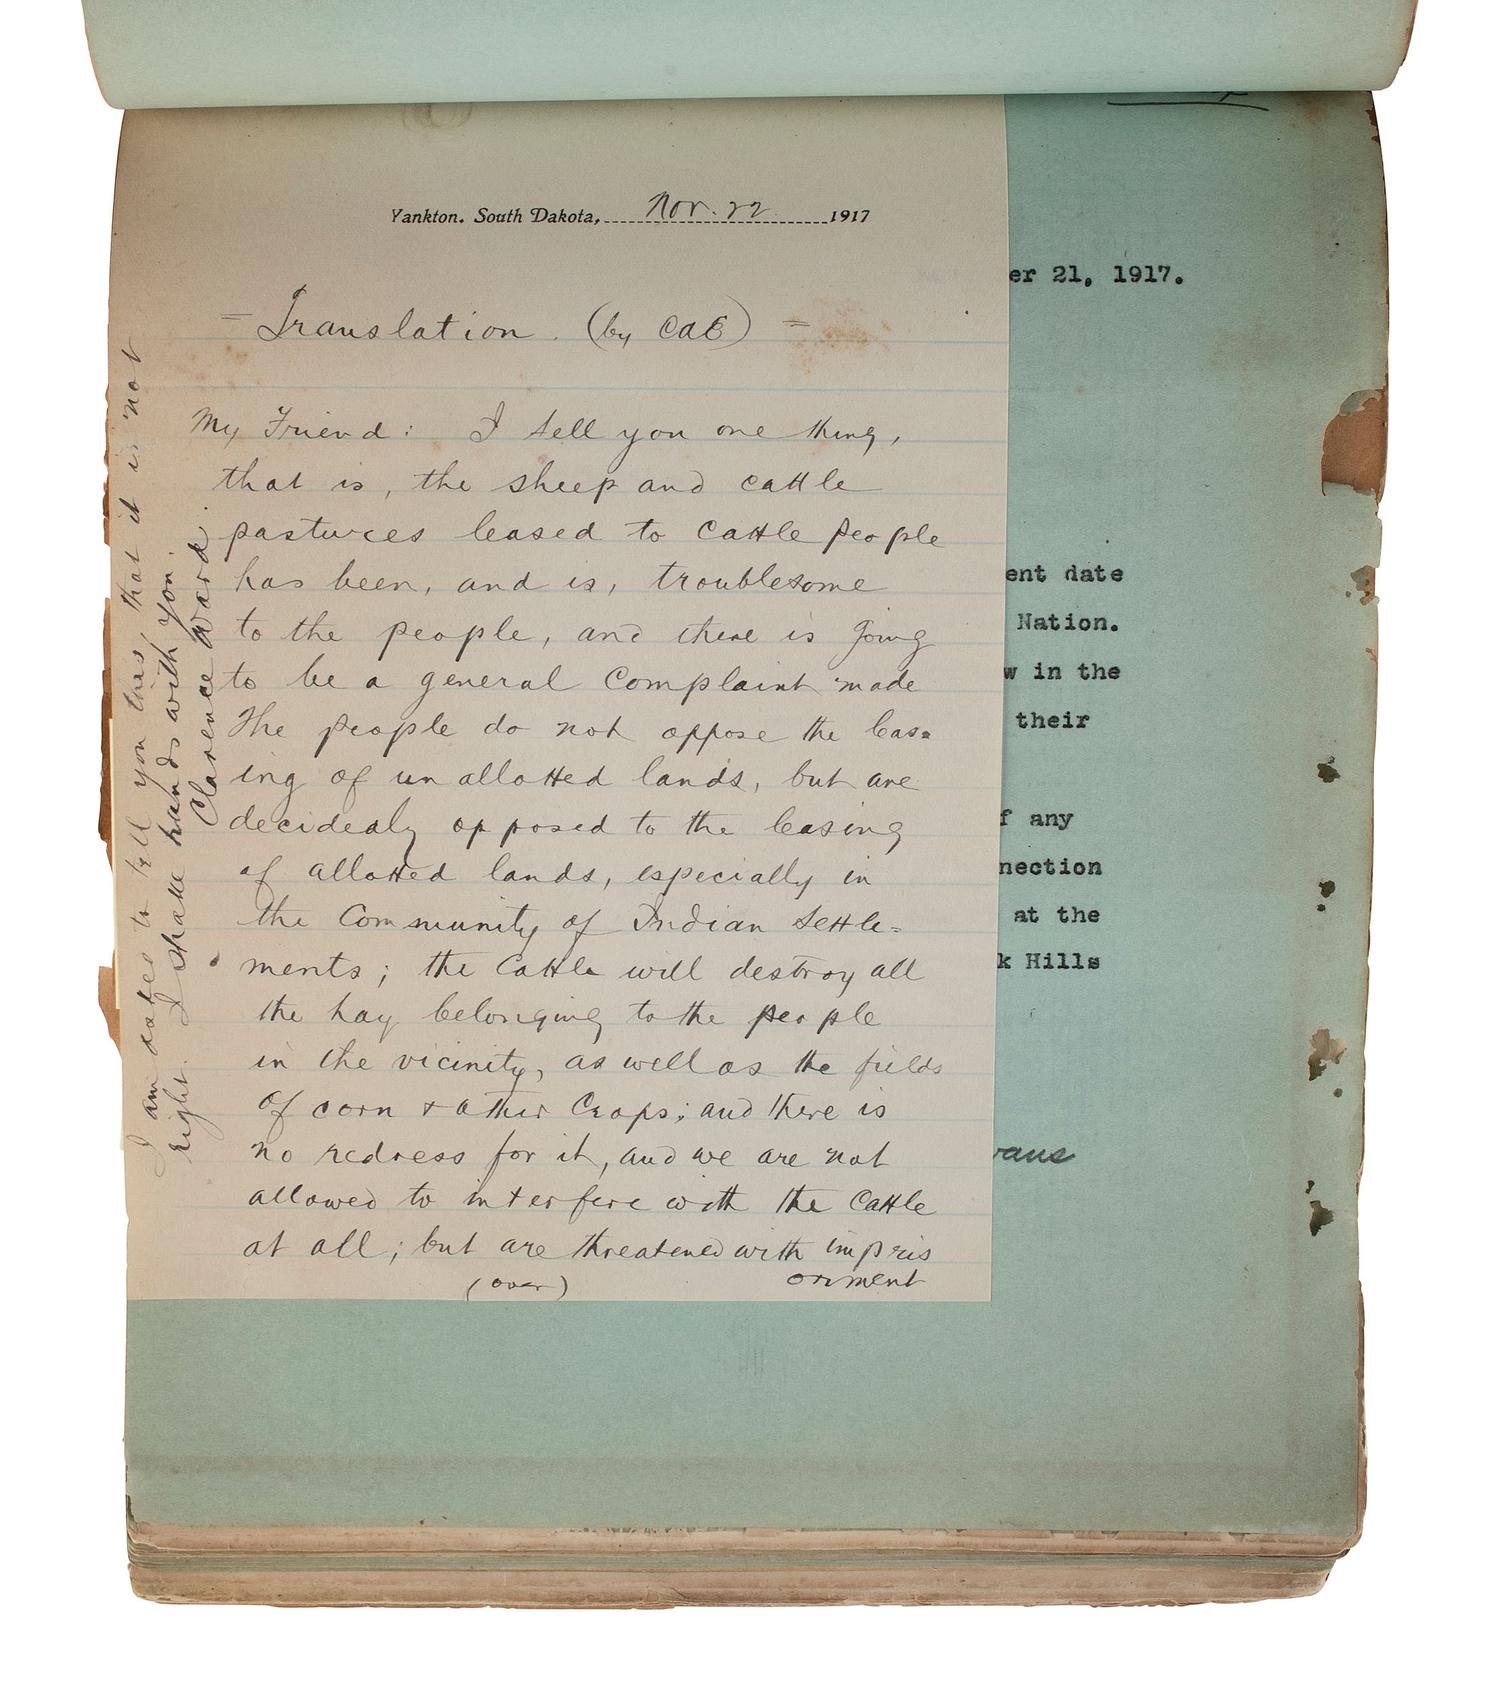 Yankton. South Dakota, Nov. 22 1917
= Translation. (by CaE) =
My Friend: I tell you one thing,
that is, the sheep and cattle
pastures leased to Cattle People
has been, and is, troublesome
to the people, and there is going
to be a general Complaint made
The people do not oppose the leas=
ing of unallotted lands, but are
decidedly opposed to the leasing
of allotted lands, especially in
the Community of Indian Settle=
ments; the Cattle will destroy all
the hay belonging to the people
in the vicinity, as well as the fields
of corn & other Crops; and there is
no redress for it, and we are not
allowed to interfere with the Cattle
at all; but are threatened with impris
onment
(over)
I am to tell you this, that it is not
right. I shake hands with you.
Clarence Ward.
er 21, 1917.
ent date
Nation.
w in the
their
f any
nection
at the
k Hills
vans